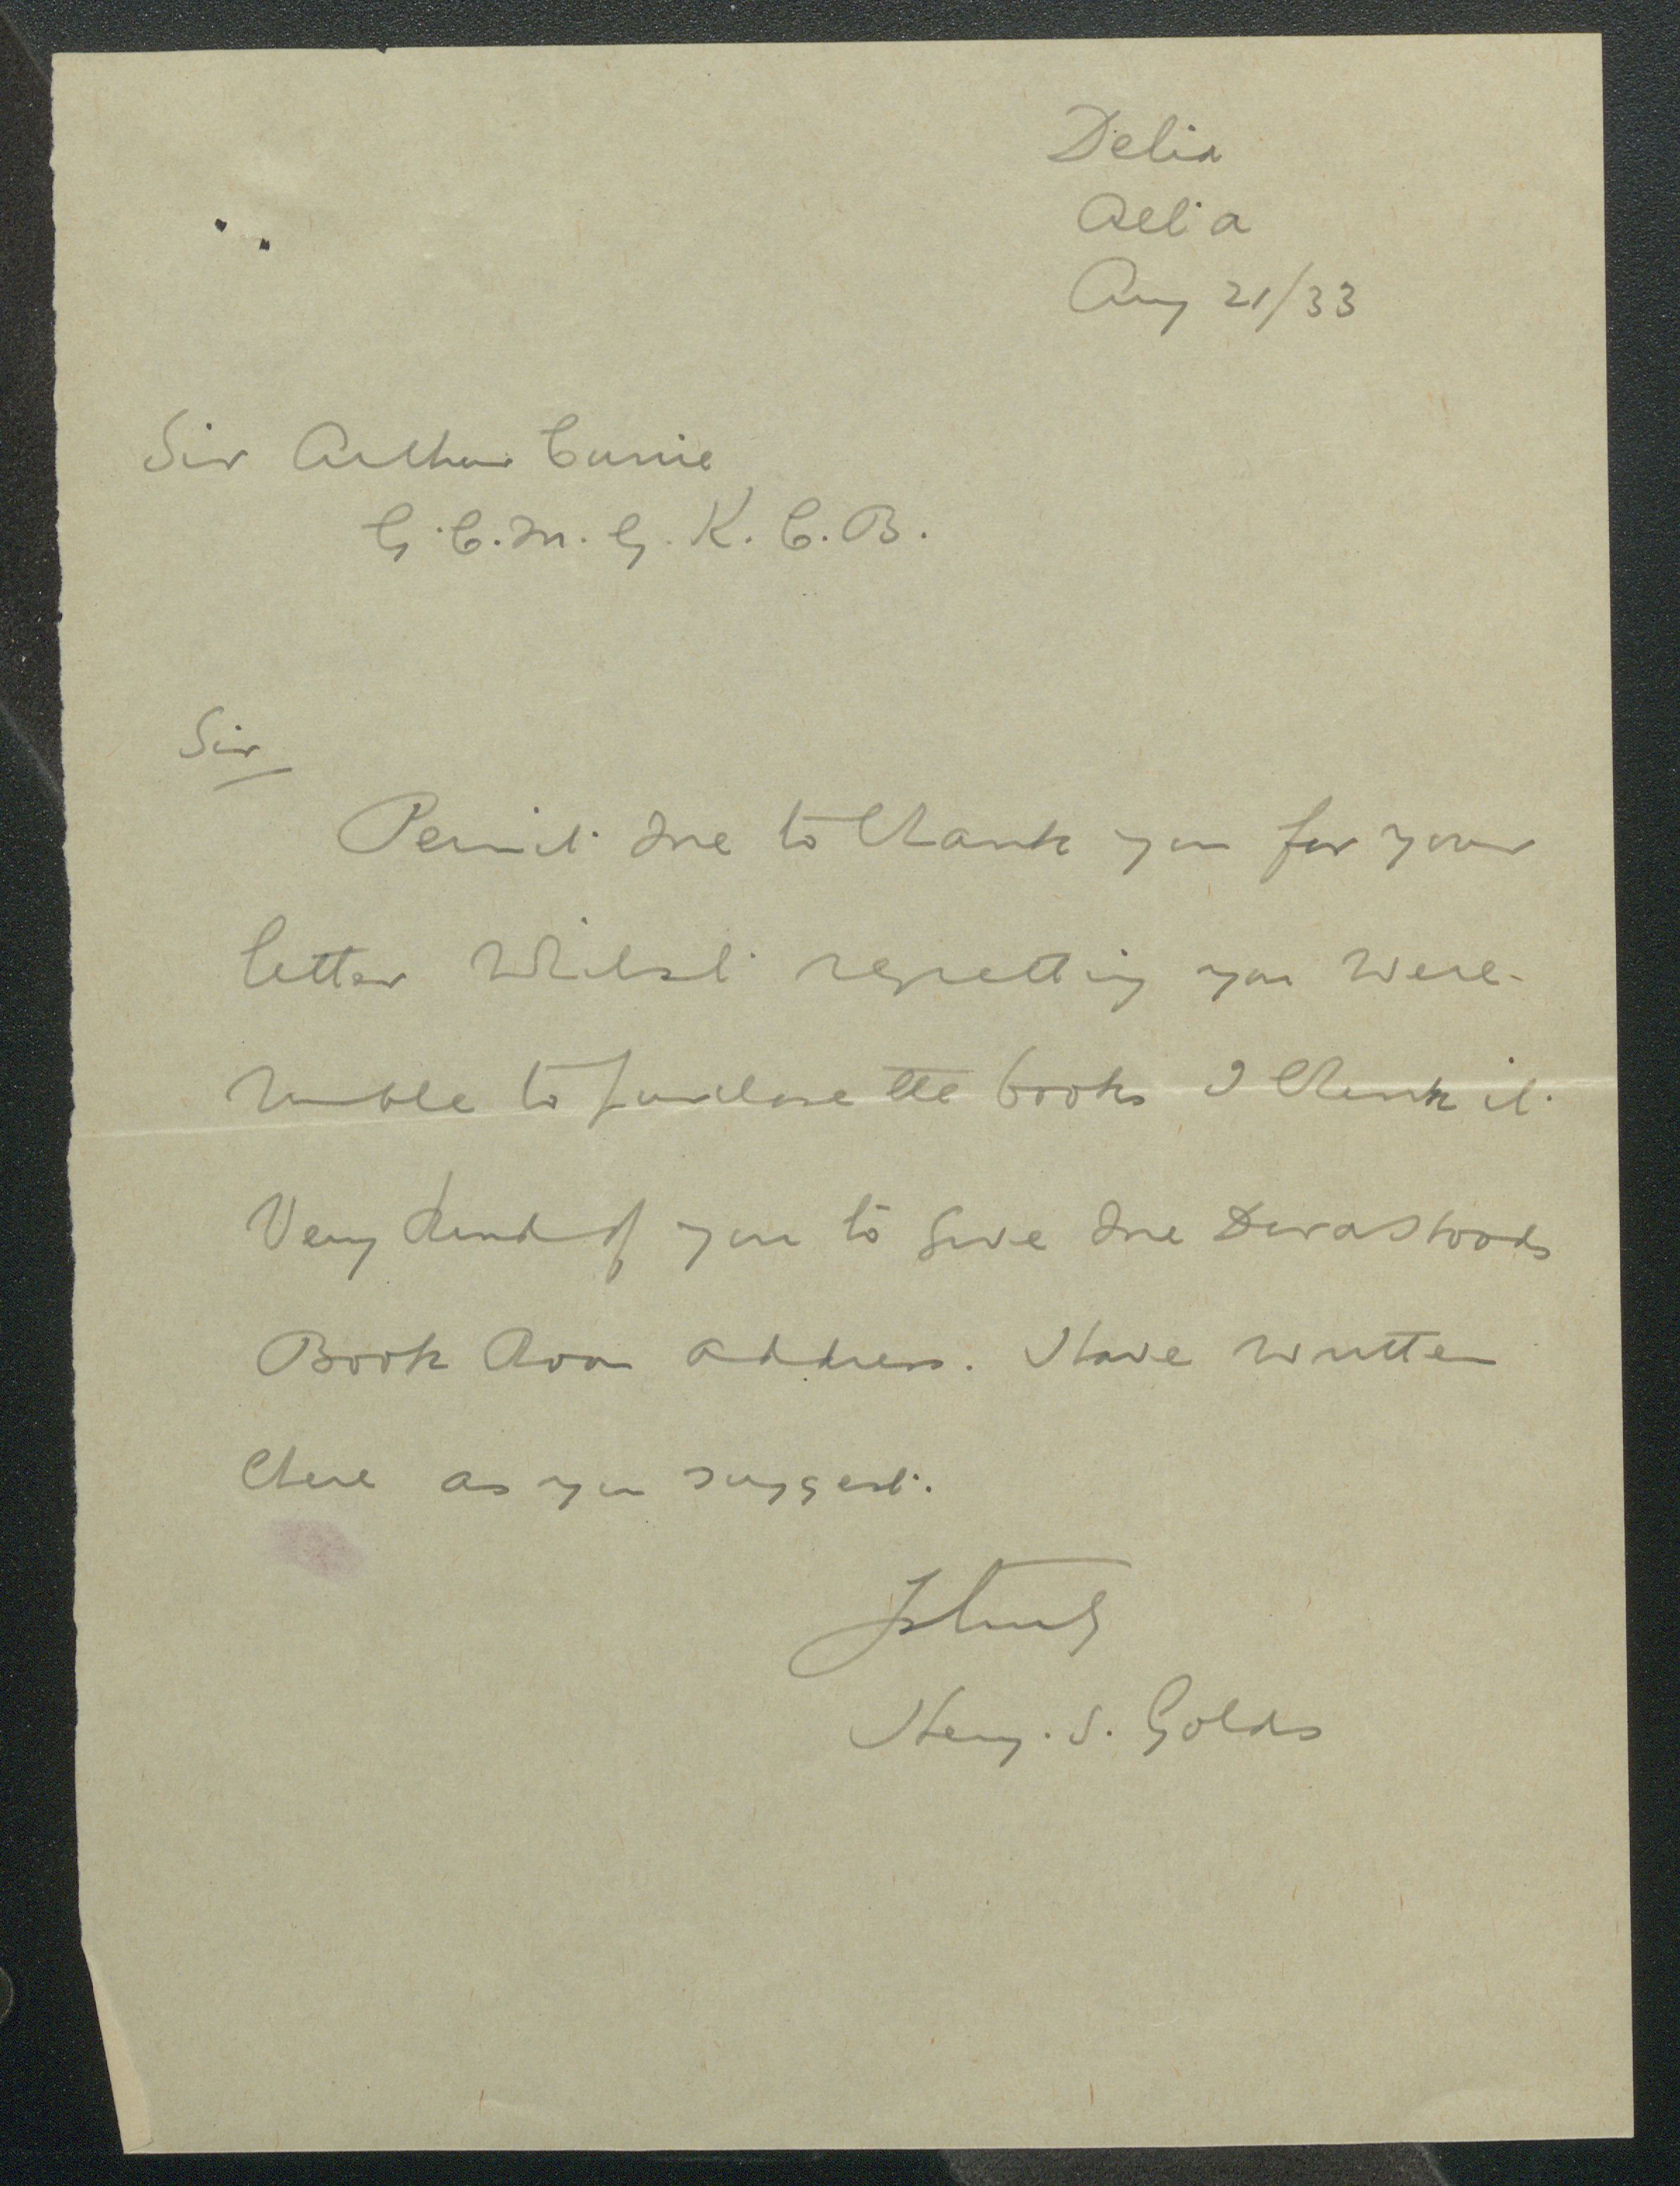 Delia
Aelia
Aug 21/33
Sir Arthur Currie
G.C.M.G. K.C.B.
Sir
Permit me to thank you for your
letter Whilst regretting you were
unable to purchase the books I think it
Very kind of you to give me
Book Room address. Have written
there as you suggest.
Henry. S. Golds